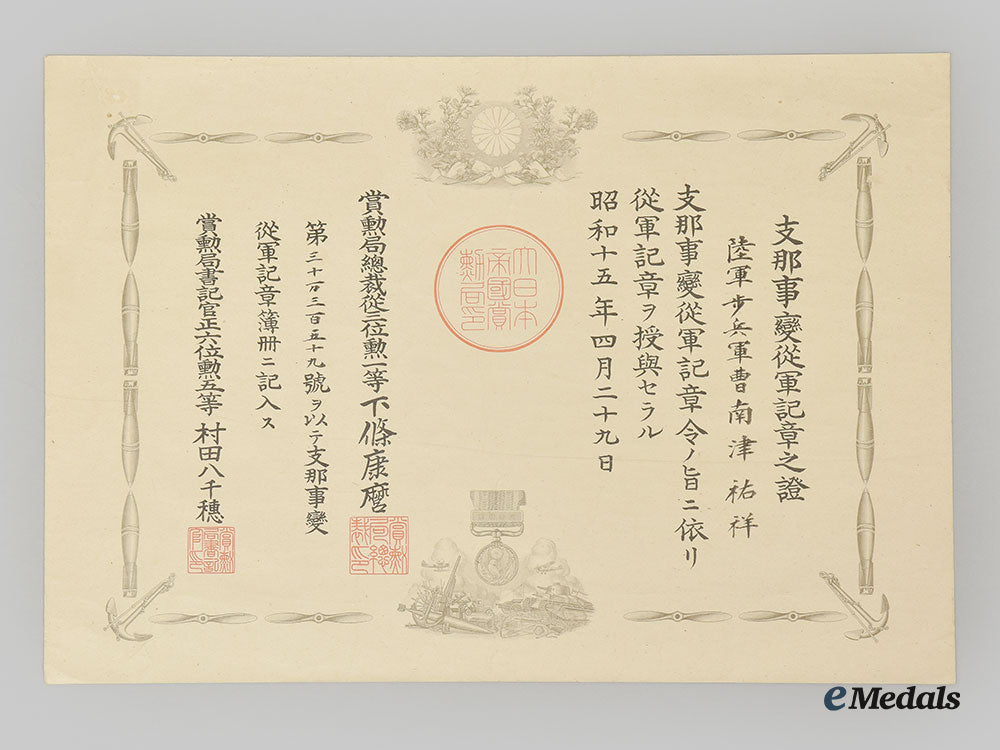 支那事變從軍記章之證
陸軍步兵軍曹南津祐祥
支那事變從軍記章令ノ旨ニ依リ
從軍記章ヲ授與セラル
昭和十五年四月二十九日
大日本
帝國賞
勳局印
賞勲局總裁從三位勲一等下條康麿
第三十万三百五十九號ヲ以テ支那事變
從軍記章簿冊ニ記入ス
賞勲局書記官正六位勲五等村田八千穗
賞勳
局總
裁印
賞勳
局書記
官印
eMedals